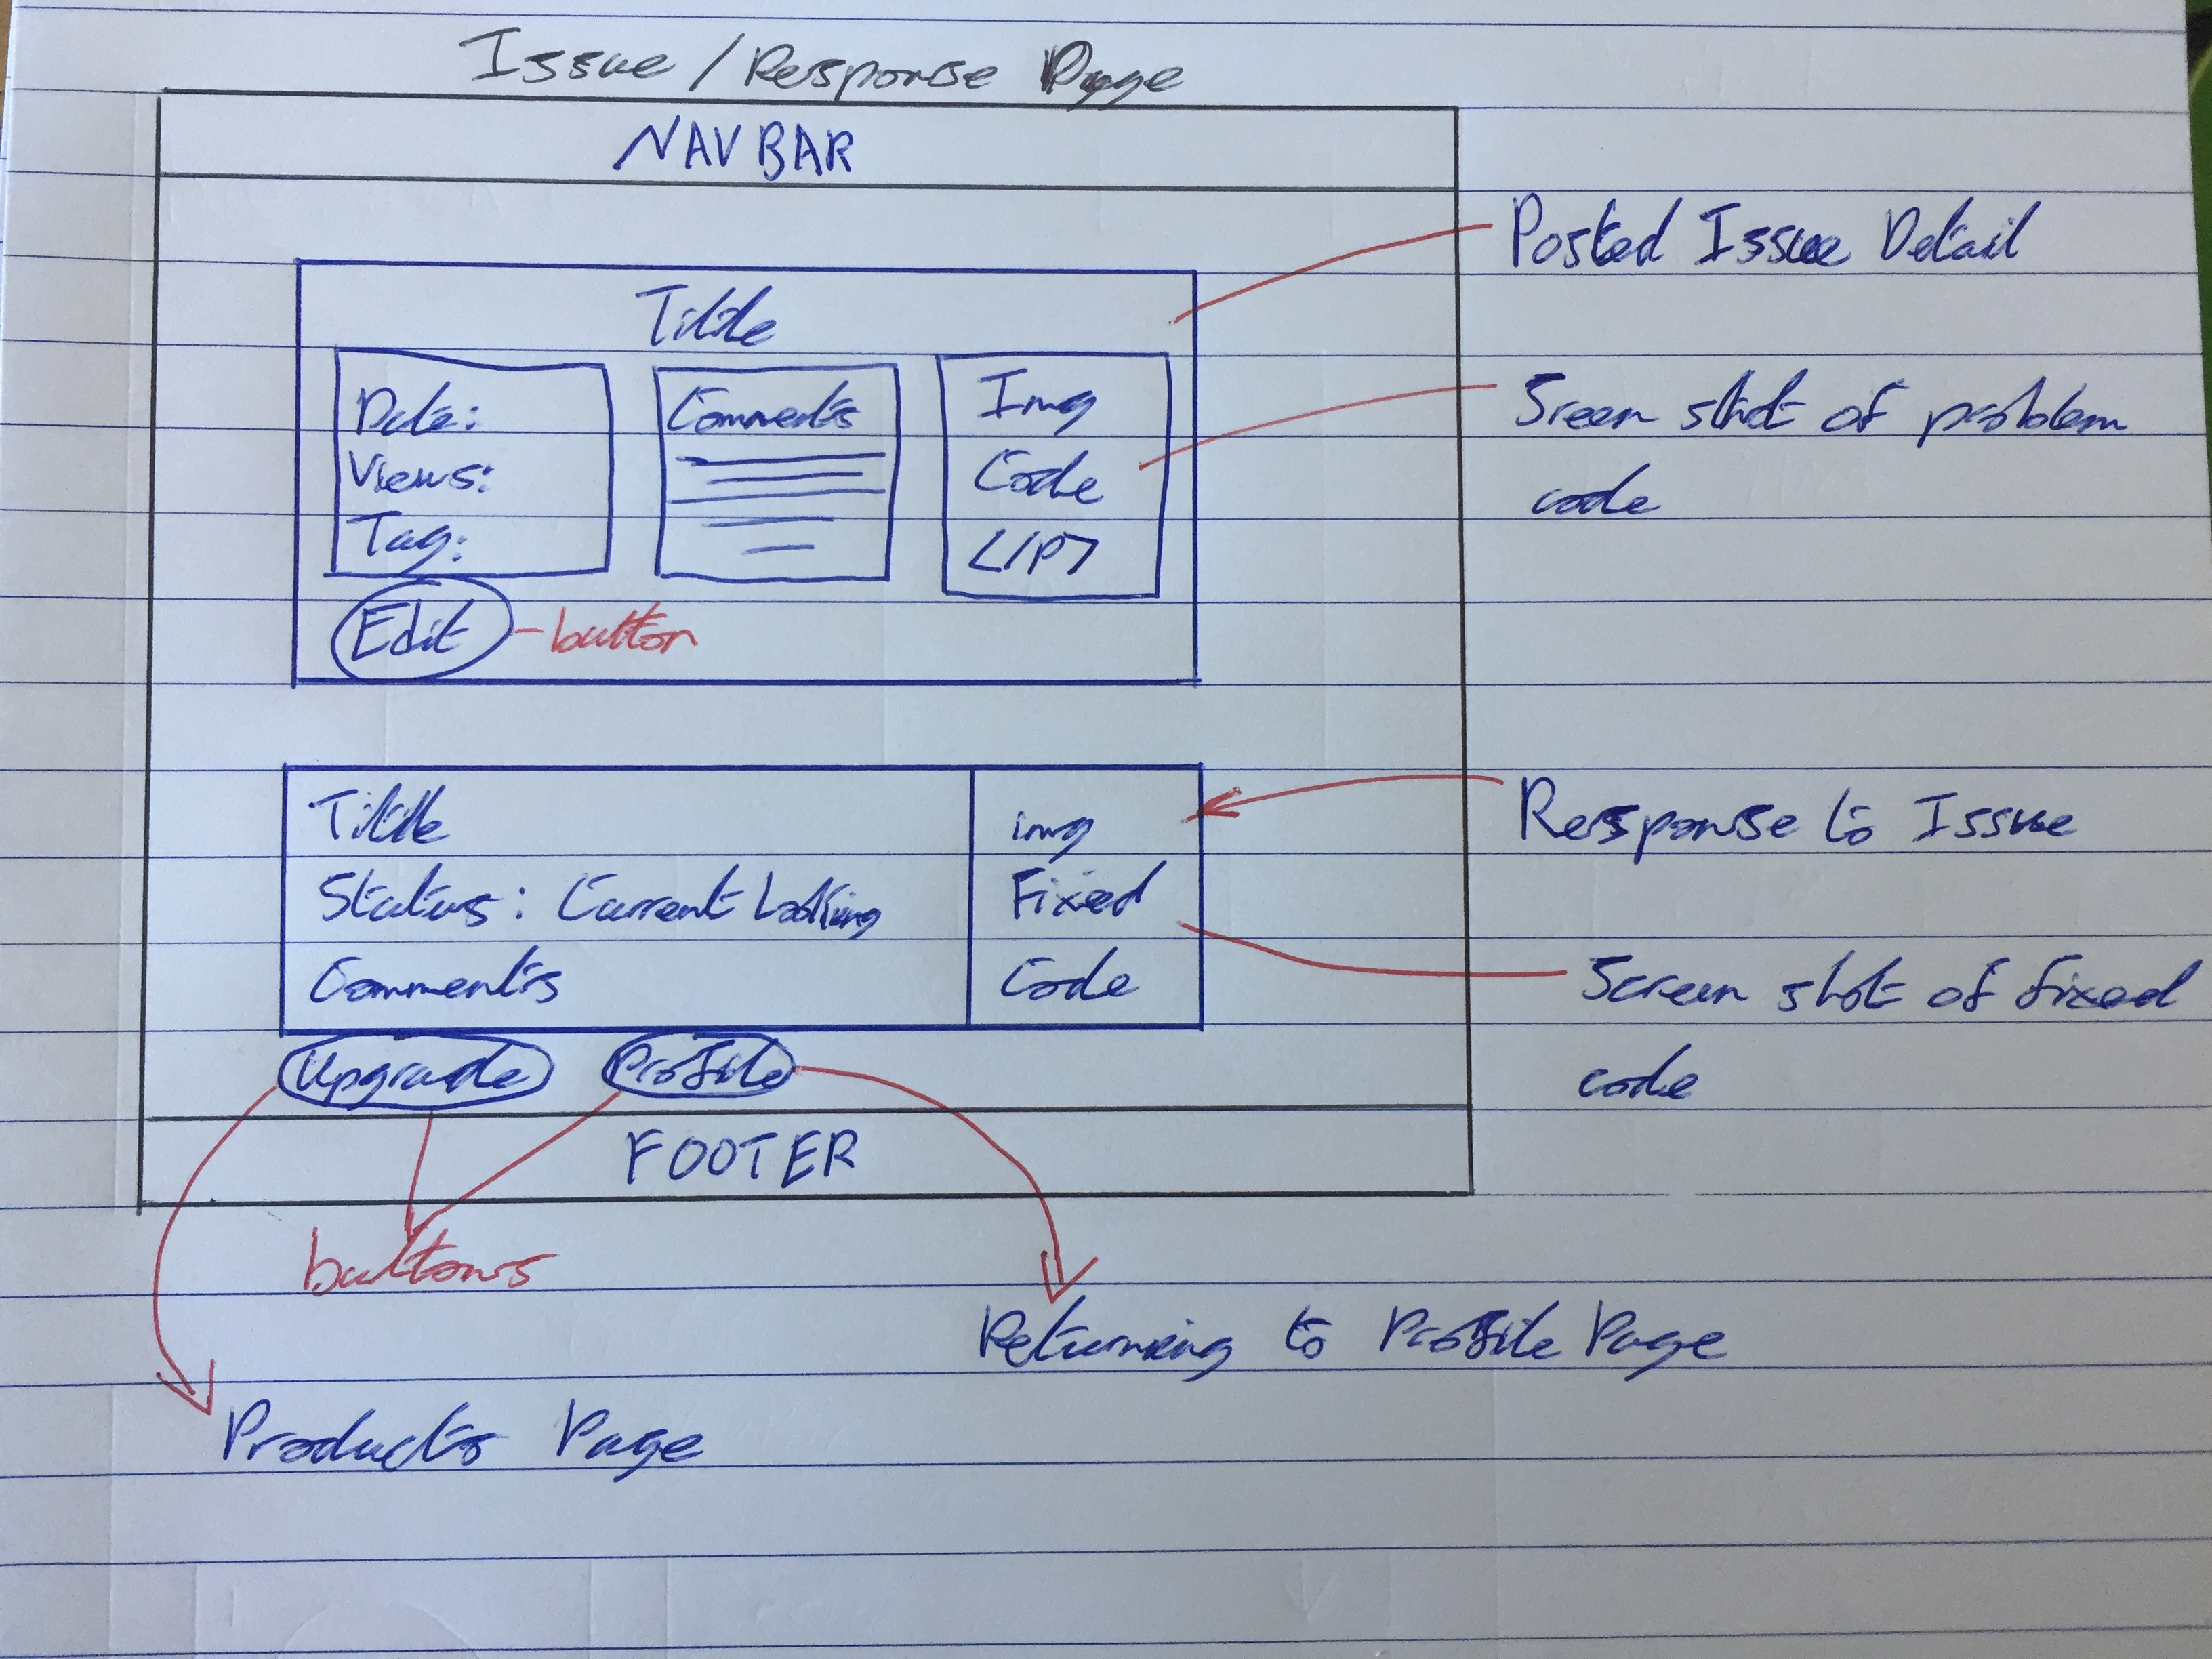 Issue / Response Page
NAV BAR
Posted Issue Detail
Title
Date:
Views:
Tag:
Comments
Img
Code
</P>
Sreen shot of problem
code
Edit - button
Title
Status: Current Looking
Comments
img
Fixed
Code
Response to Issue
Screen shot of fixed
code
Upgrade
Profile
FOOTER
buttons
Returning to Profile Page
Products Page